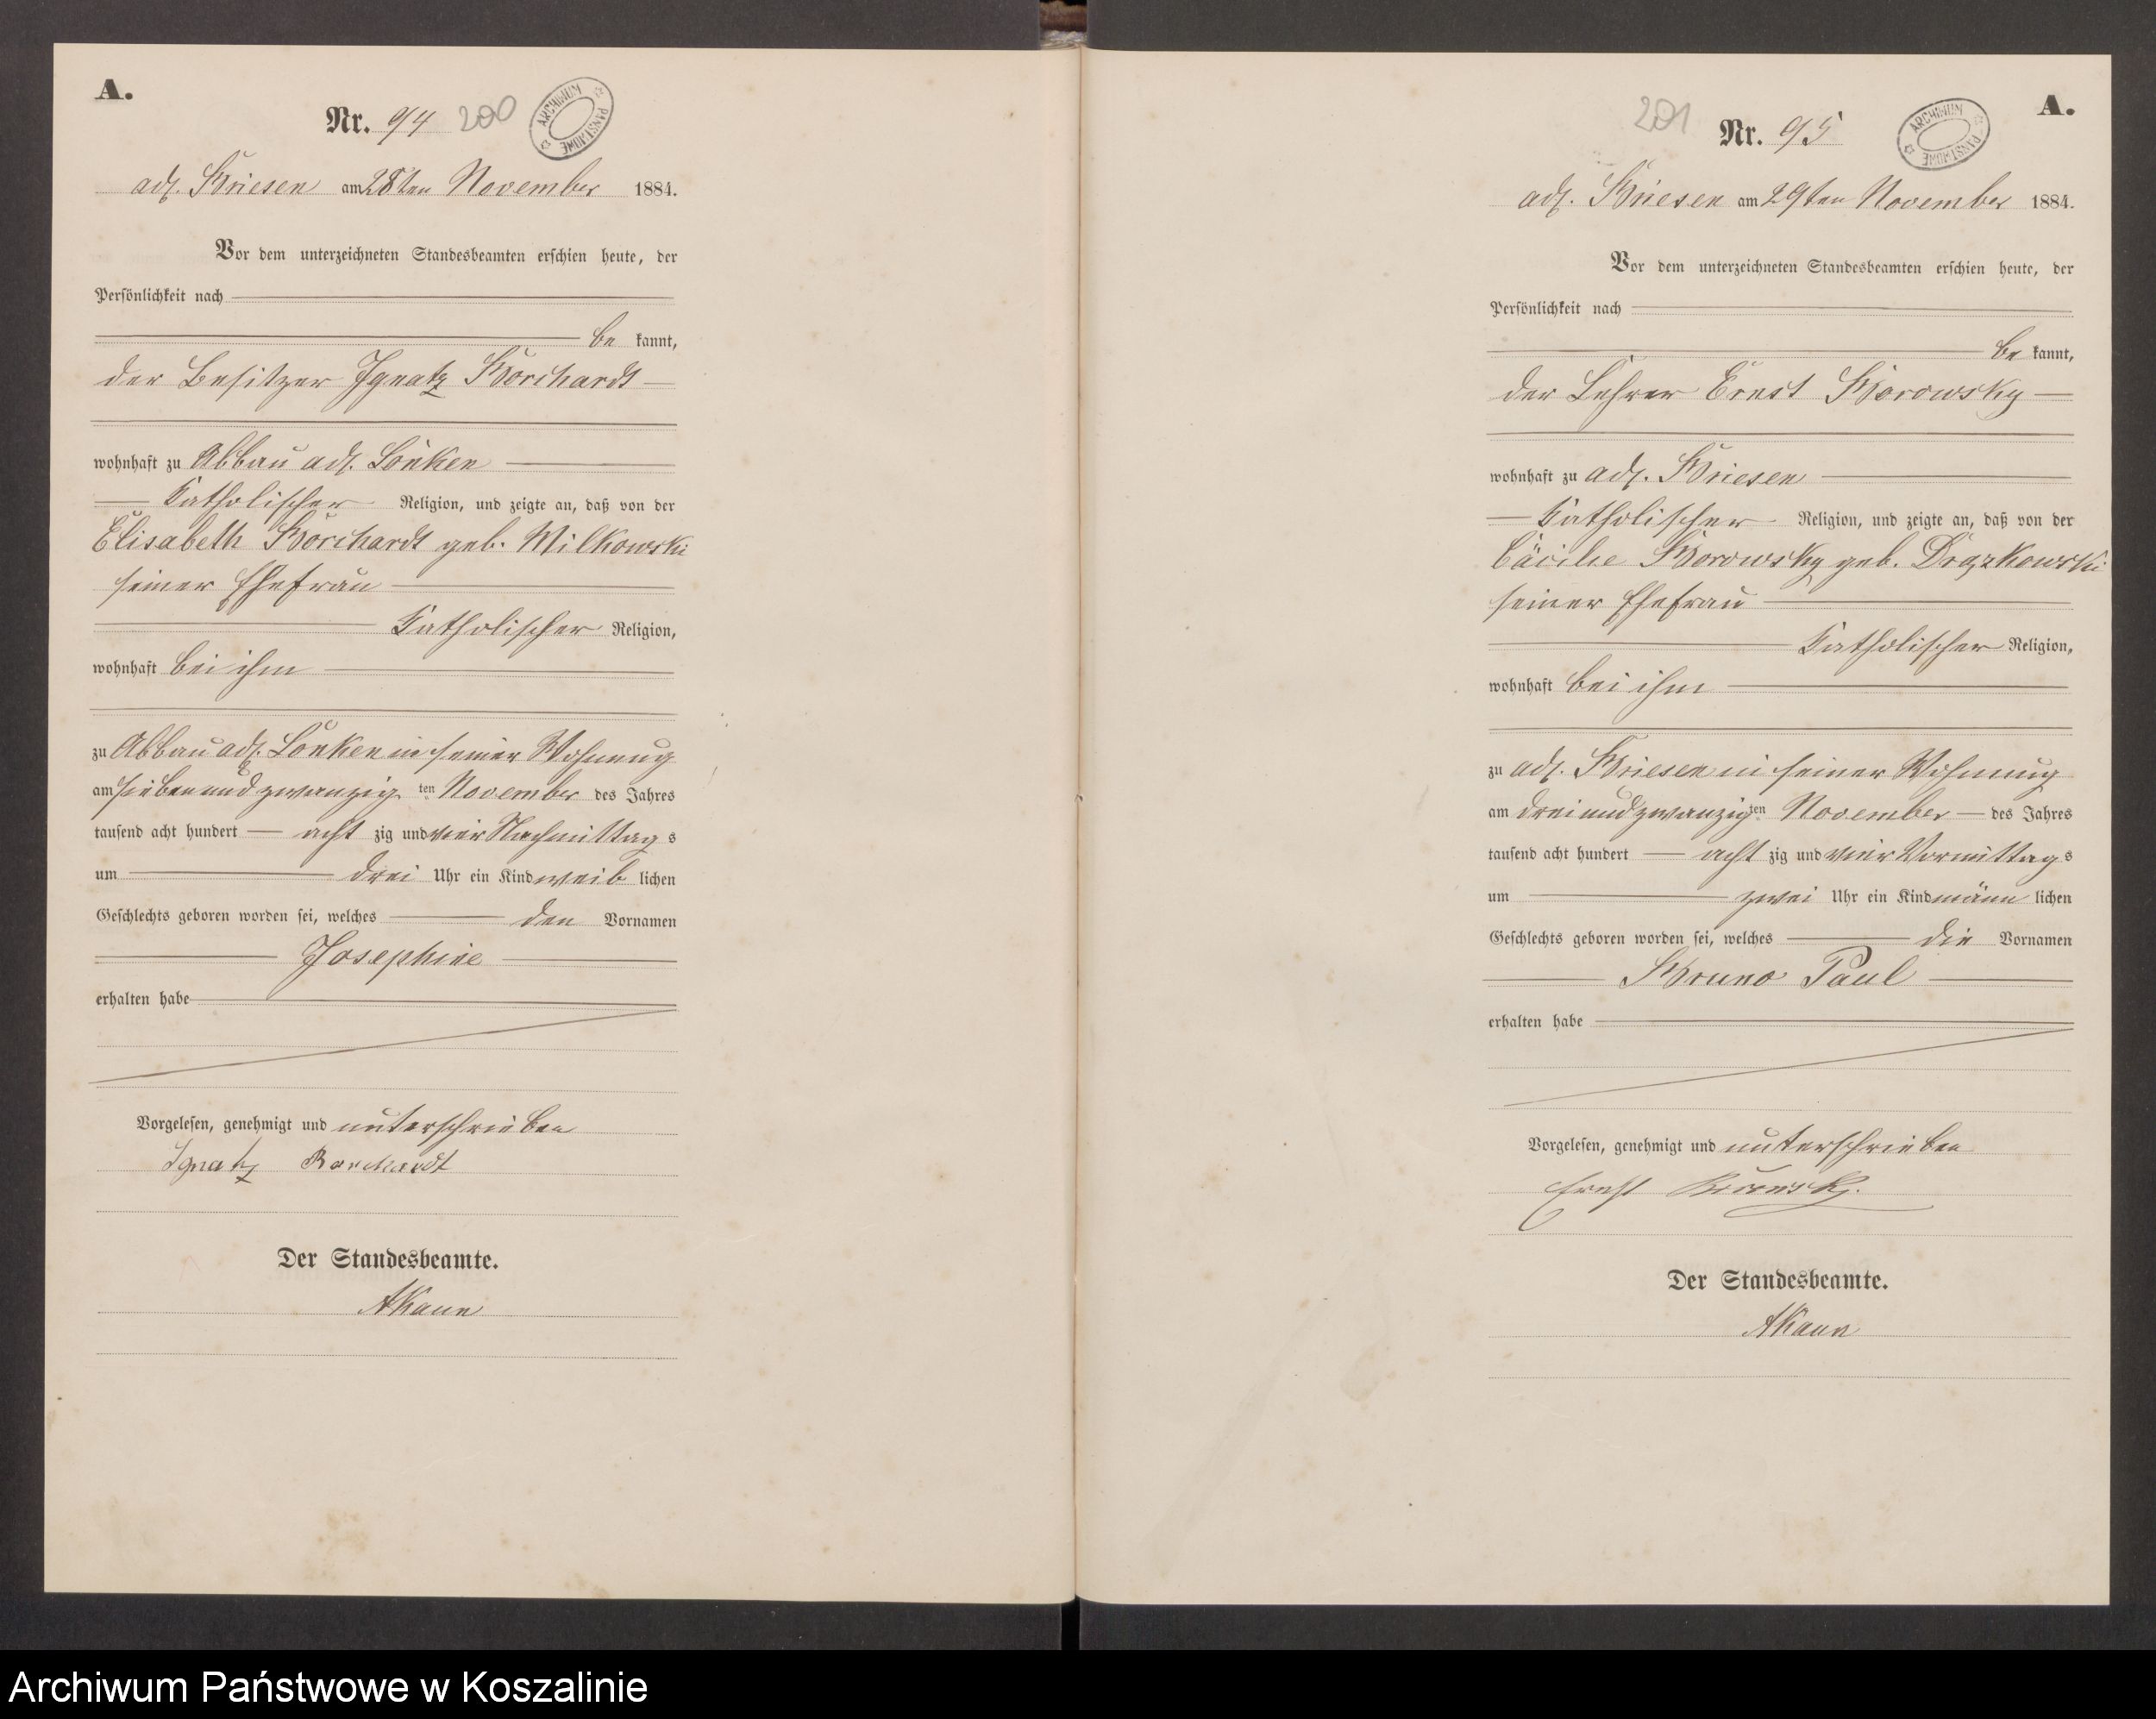 A.
Nr. 94 200
ARCHIWUM PAŃSTWOWE
adl. Briesen am 28ten November 1884.
Vor dem unterzeichneten Standesbeamten erschien heute, der
Persönlichkeit nach
be kannt,
der Besitzer Ignatz Borchardt
wohnhaft zu Abbau adl. Lonken
katholischer Religion, und zeigte an, daß von der
Elisabeth Borchardt geb. Wilkowski
seiner Ehefrau
katholischer Religion,
wohnhaft bei ihm
zu Abbau adl. Lonken in seiner Wohnung
am siebenundzwanzig ten November des Jahres
tausend acht hundert acht zig und vier Nachmittag s
um drei Uhr ein Kind weib lichen
Geschlechts geboren worden sei, welches den Vornamen
Josephine
erhalten habe
Vorgelesen, genehmigt und unterschrieben
Ignatz Borchardt
Der Standesbeamte.
AKaun
A.
201 Nr. 95
ARCHIWUM PAŃSTWOWE
adl. Briesen am 29ten November 1884.
Vor dem unterzeichneten Standesbeamten erschien heute, der
Persönlichkeit nach
be kannt,
der Lehrer Ernst Borowsky
wohnhaft zu adl. Briesen
katholischer Religion, und zeigte an, daß von der
Cäcilie Borowsky geb. Drązkowski
seiner Ehefrau
katholischer Religion,
wohnhaft bei ihm
zu adl. Briesen in seiner Wohnung
am dreiundzwanzig ten November des Jahres
tausend acht hundert acht zig und vier Vormittag s
um zwei Uhr ein Kind männ lichen
Geschlechts geboren worden sei, welches die Vornamen
Bruno Paul
erhalten habe
Vorgelesen, genehmigt und unterschrieben
Ernst Borowsky.
Der Standesbeamte.
AKaun
Archiwum Państwowe w Koszalinie